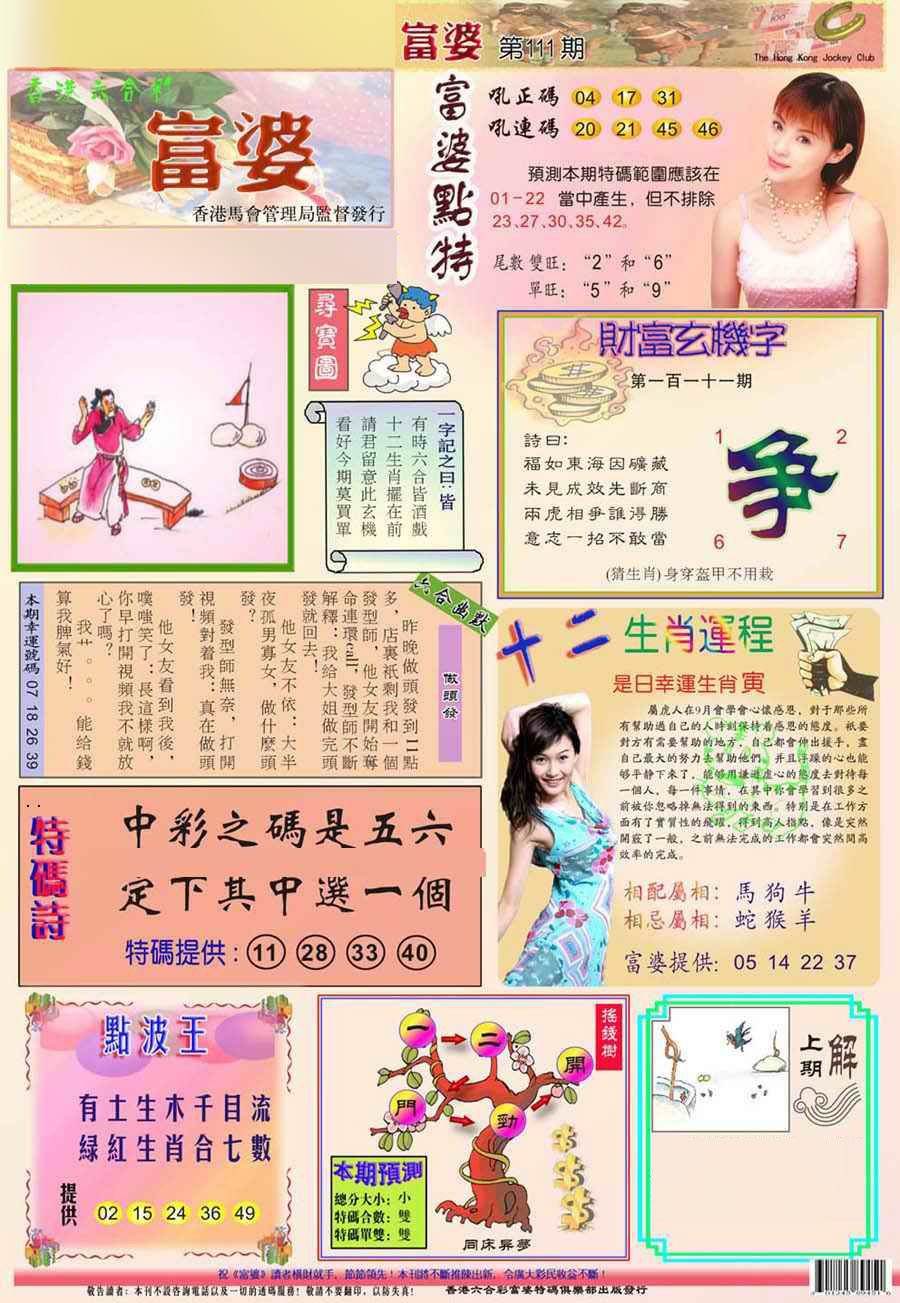 富婆 第111期
The Hong Kong Jockey Club
香港六合彩
富婆
香港馬會管理局監督發行
富婆點特
吼正碼 04 17 31
吼連碼 20 21 45 46
預測本期特碼範圍應該在
01-22 當中產生，但不排除
23、27、30、35、42。
尾數雙旺：“2”和“6”
單旺：“5”和“9”
尋寶圖
一字記之曰：皆
有時六合皆酒戲
十二生肖擺在前
請君留意此玄機
看好今期莫買單
財富玄機字
第一百一十一期
詩曰：
福如東海因礦藏
未見成效先斷商
兩虎相爭誰得勝
意志一招不敢當
爭
1 2
6 7
(猜生肖)身穿盔甲不用栽
六合幽默
做頭發
昨晚做頭發到11點
多，店裏衹剩我和一個
發型師，他女友開始奪
命連環call，發型師不斷
解釋：我給大姐做完頭
發就回去！
他女友不依：大半
夜孤男寡女，做什麼頭
發？
發型師無奈，打開
視頻對着我：真在做頭
發！
他女友看到我後，
噗嗤笑了：長這樣啊，
你早打開視頻我不就放
心了嗎？
我艹。。。能給錢
算我脾氣好！
本期幸運號碼 07 18 26 39
十二生肖運程
是日幸運生肖寅
屬虎人在9月會學會心懷感恩，對于那些所
有幫助過自己的人時刻保持着感恩的態度。衹要
對方有需要幫助的地方，自己都會伸出援手，盡
自己最大的努力去幫助他們，并且浮躁的心也能
够平静下來了，能够用謙遜虛心的態度去對待每
一個人，每一件事情，在其中你會學習到很多之
前被你忽略掉無法得到的東西。特別是在工作方
面有了實質性的飛躍，得到高人指點，像是突然
開竅了一般，之前無法完成的工作都會突然間高
效率的完成。
相配屬相：馬狗牛
相忌屬相：蛇猴羊
富婆提供：05 14 22 37
特碼詩
中彩之碼是五六
定下其中選一個
特碼提供：11 28 33 40
點波王
有土生木千目流
綠紅生肖合七數
提供 02 15 24 36 49
搖錢樹
一 二 開 門 勁
本期預測
總分大小：小
特碼合數：雙
特碼單雙：雙
同床異夢
上期解
祝《富婆》讀者橫財就手，節節領先！本刊將不斷推陳出新，令廣大彩民收益不斷！
敬告讀者：本刊不設咨詢電話以及一切的透碼服務！敬請不要翻印，以防失真！ 香港六合彩富婆特碼俱樂部出版發行